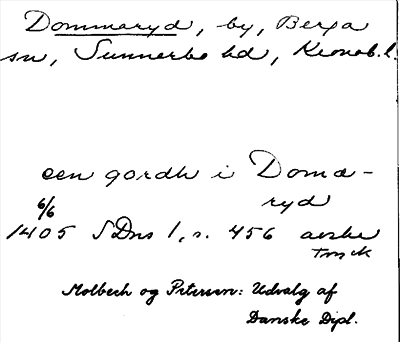 Dommaryd, by, Berga
sn, Sunnerbo hd, Kronob. l.
een gordh i Doma-
ryd
6/6
1405 SDns 1, s. 456 
tryck
Molbech og Petersen: Udvalg af
Danske Dipl.